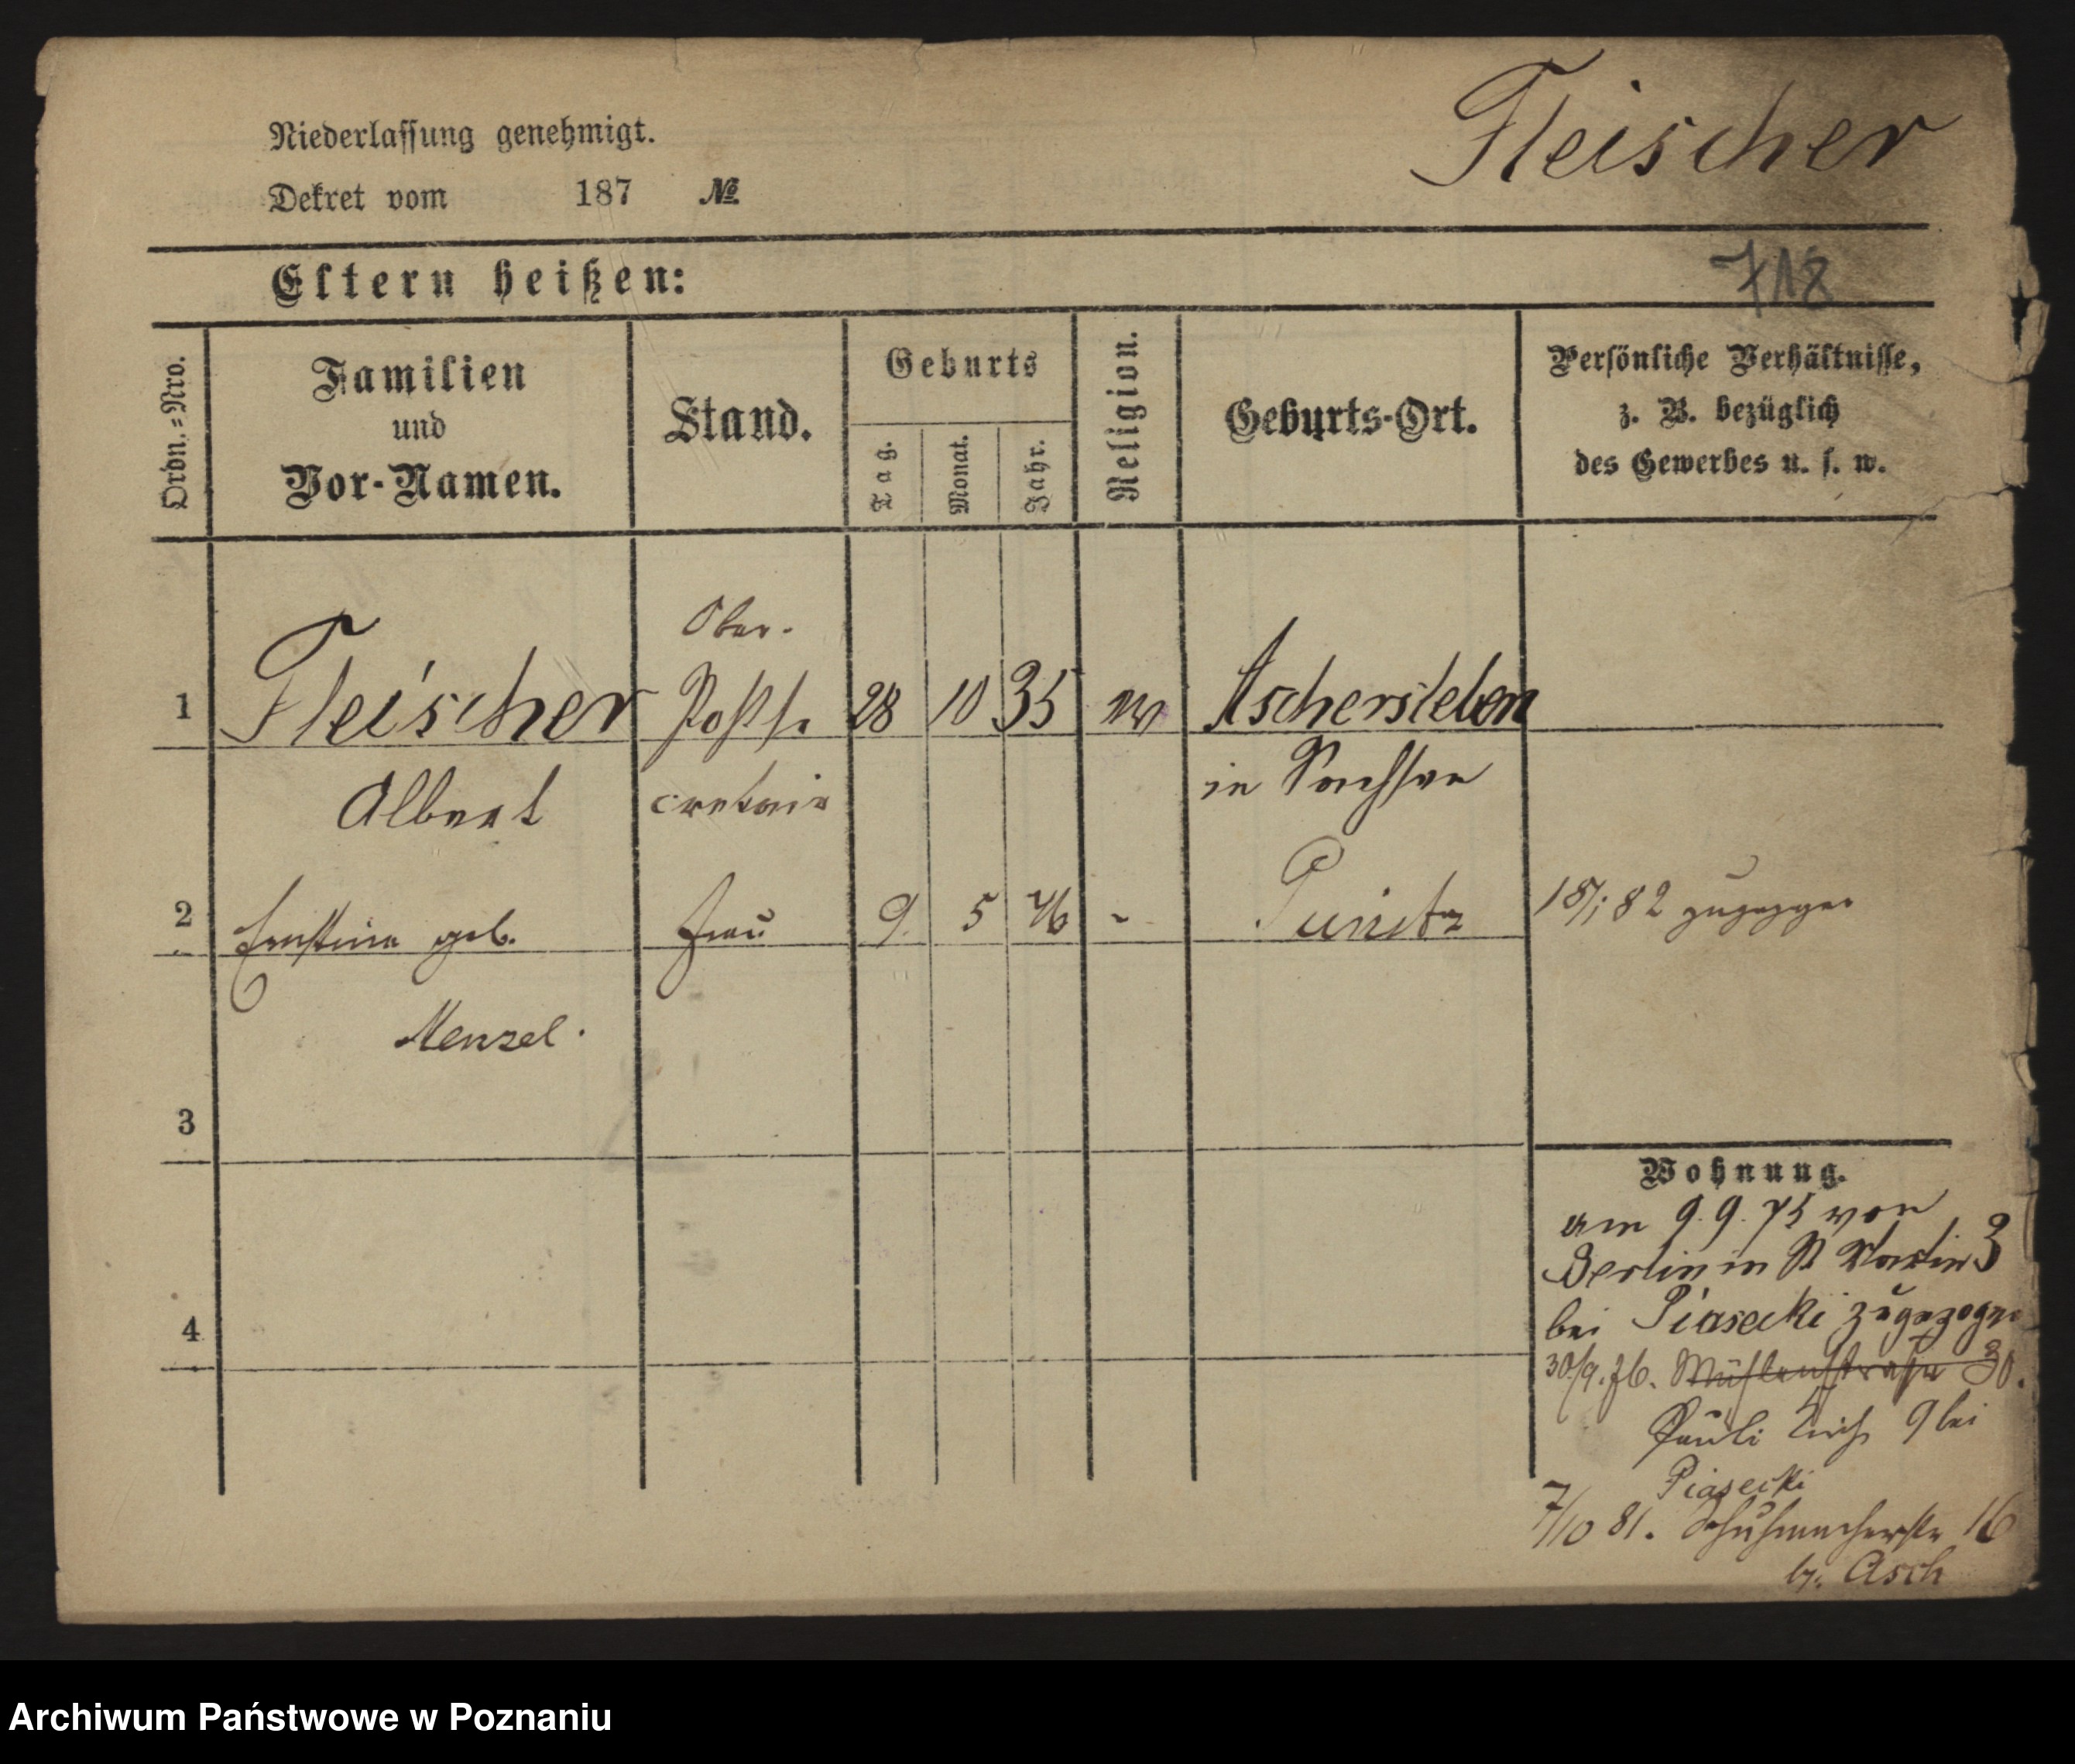 Fleischer
Niederlassung genehmigt.
Dekret vom 187 №
718
Eltern heißen:
Ordn.=Nro.
Familien
und
Vor-Namen.
Stand.
Geburts
Tag.
Monat.
Jahr.
Religion.
Geburts-Ort.
Persönliche Verhältnisse,
z. B. bezüglich
des Gewerbes u. s. w.
Ober-
1 Fleischer Postse 28 10 35 ev Aschersleben
Albert cretair in Sachsen
2 Ernstine geb. Frau 9. 5 46 - Punitz 18/1 82 zugezogen
Menzel.
3
Wohnung.
am 9.9.75 von
Berlin in St Martin 3
bei Piasecki zugezogen
4
30/9.76. Mühlenstraße 30.
Pauli Kirch 9 bei
Piasecki
7/10 81. Schuhmacherstr 16
bei Asch
Archiwum Państwowe w Poznaniu